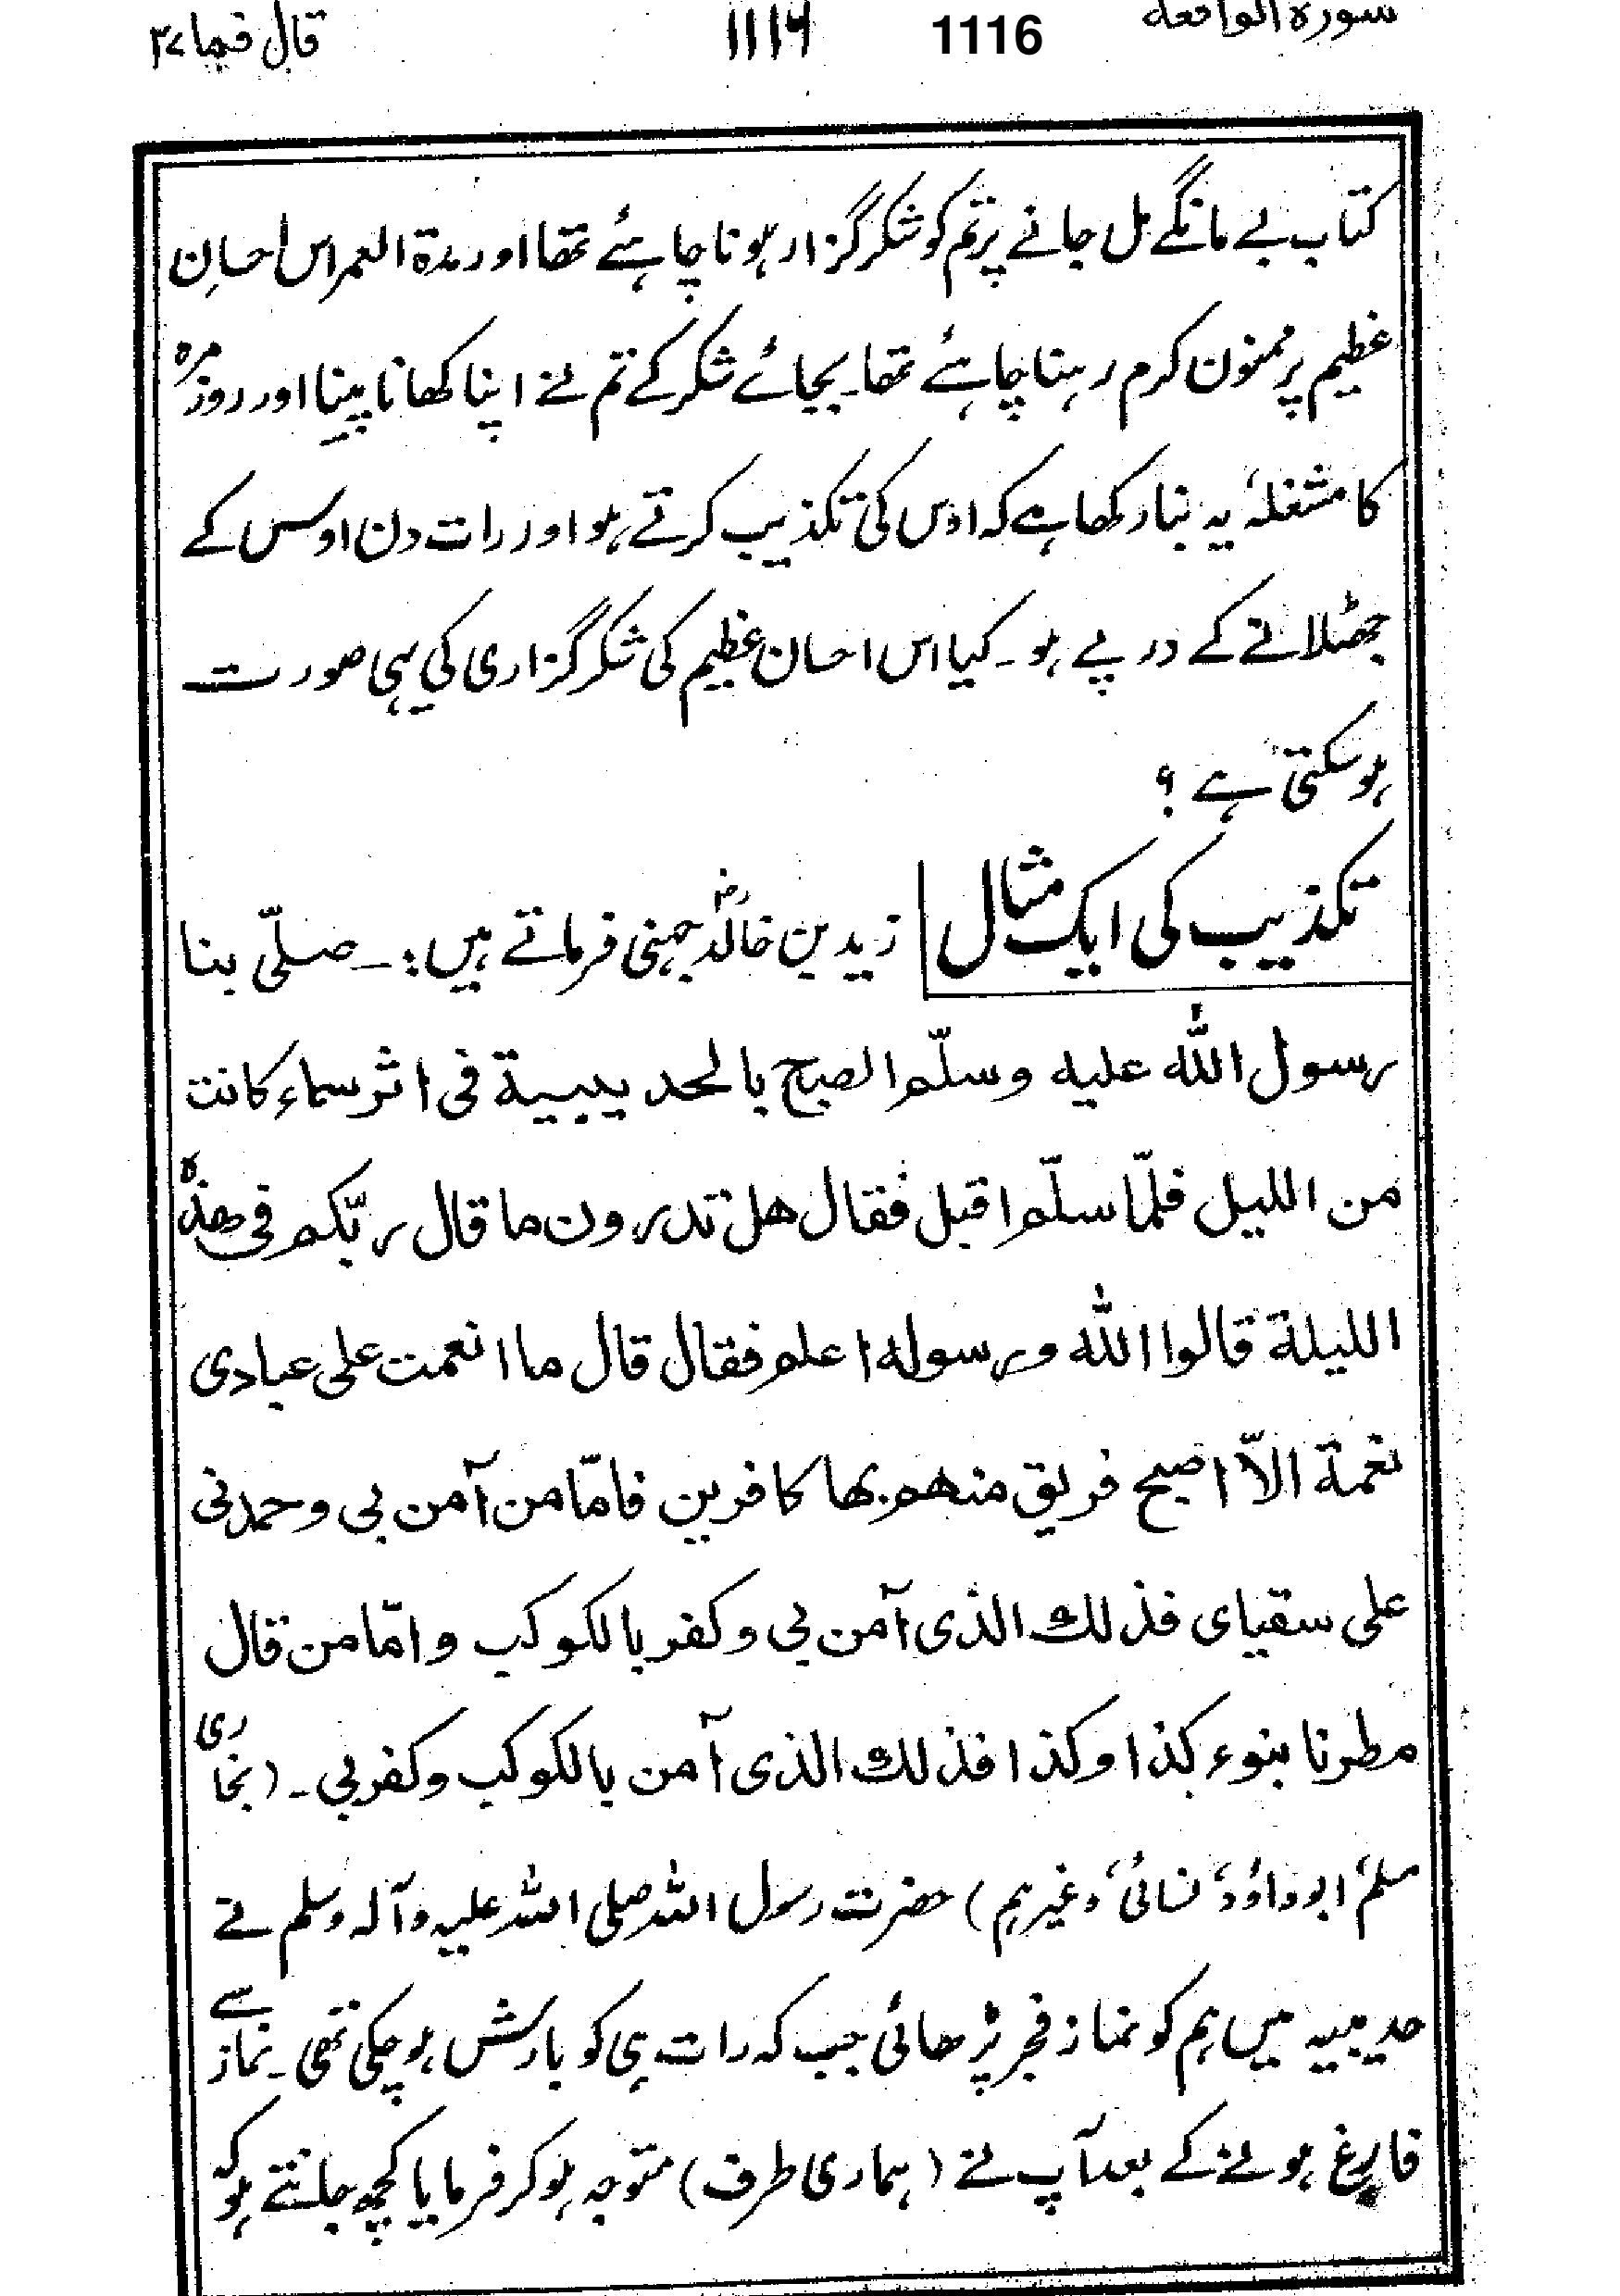 سورہ الواقعہ 1116 ۱۱۱۶ قال فما ۲۷
کتاب بے مانگے مل جانے پر تم کو شکر گزار ہونا چاہئے تھا اور مدۃ العمر اس احسانِ
عظیم پر ممنون کرم رہنا چاہئے تھا۔ بجائے شکر کے تم نے اپنا کھانا پینا اور روزمرہ
کا مشغلہ یہ بنا رکھا ہے کہ اوس کی تکذیب کرتے ہو اور رات دن اوس کے
جھٹلانے کے درپے ہو۔ کیا اس احسان عظیم کی شکر گزاری کی یہی صورت
ہوسکتی ہے ؟
تکذیب کی ایک مثال زید بن خالدؓ جہنی فرماتے ہیں :۔ صلّی بنا
رسول اللہ علیہ وسلّم الصبح بالحدیبیۃ فی اثر سماء کانت
من اللیل فلمّا سلّم اقبل فقال ھل تدرون ما قال ربّکم فی ھذہ
اللیلۃ قالوا اللہ ورسولہ اعلم فقال قال ما انعمت علی عبادی
نعمۃ الاّ اصبح فریق منھم بھا کافرین فامّا من آمن بی وحمدنی
علی سقیای فذلک الذی آمن بی وکفر بالکوکب وامّا من قال
مطرنا بنوء کذا وکذا فذلک الذی آمن بالکوکب وکفر بی ۔ (بخاری
مسلم، ابوداؤد، نسائی، وغیرہم) حضرت رسول اللہ صلی اللہ علیہ وآلہ وسلم نے
حدیبیہ میں ہم کو نماز فجر پڑھائی جب کہ رات ہی کو بارش ہوچکی تھی ۔ نماز سے
فارغ ہونے کے بعد آپ نے (ہماری طرف) متوجہ ہوکر فرمایا کچھ جانتے ہو کہ